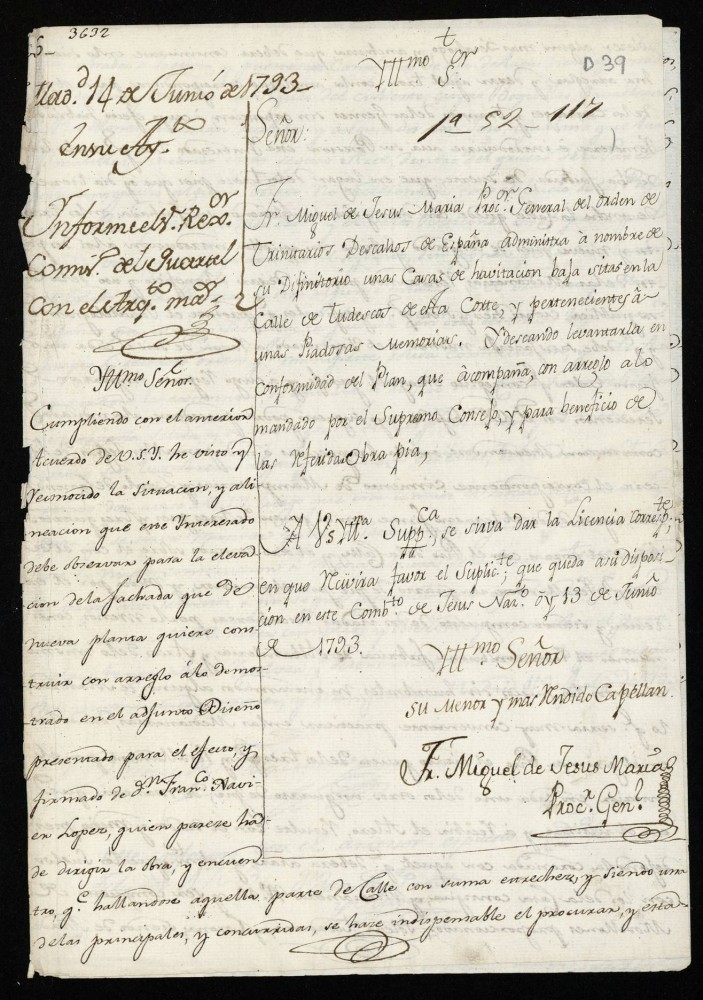 3632
D 39
Yll.mo S.or
1ª 52 - 117
Mad.d 14 de Junio de 1793
En su Ay.to
Informe el S.r Rex.or
Comis.º del Quartel
con el Arq.to ma.or
Yll.mo Señor.
Cumpliendo con el anterior
Acuerdo de V.S.Y. he visto y
reconocido la situacion, y ali
neacion que este Interesado
debe observar para la eleva
cion de la fachada que de
nueva planta quiere cons
truir con arreglo á lo demos-
trado en el adjunto Diseño
presentado para el efecto, y
firmado de d.n Fran.co Xavi-
er Lopez, quien pareze há
de dirigir la obra, y encuen-
tro, q.e hallandose aquella parte de Calle con suma estrechez, y siendo una
de las principales, y concurridas, se haze indispensable el procurar, y está
Señor:
Fr. Miguel de Jesus Maria Proc.or General del Orden de
Trinitarios Descalzos de España, administra à nombre de
su Difinitorio unas Casas de havitacion baja sitas en la
Calle de Tudescos de esta Corte, y pertenecientes à
unas Piadosas Memorias. Y deseando levantarla en
conformidad del Plan, que àcompaña, con arreglo a lo
mandado por el Supremo Consejo, y para beneficio de
las referidas Obra pia,
A V.S. Yll.ma Supp.ca se sirva dar la Licencia corresp.te
en que recivira favor el Suplic.te, que queda a su disposi-
cion en este Comb.to de Jesus Naz.no oy 13 de Junio
de 1793.
Yll.mo Señor
su Menor y mas rendido Capellan
Fr. Miguel de Jesus Maria
Proc.r Gen.l